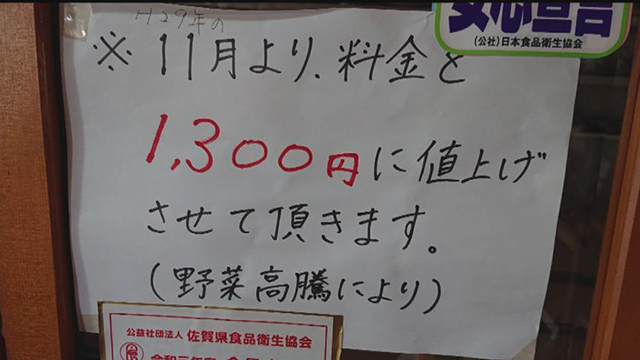 H29年の
安心宣言
(公社)日本食品衛生協会
※11月より、料金を
1,300円に値上げ
させて頂きます。
(野菜高騰により)
公益社団法人 佐賀県食品衛生協会
令和元年度